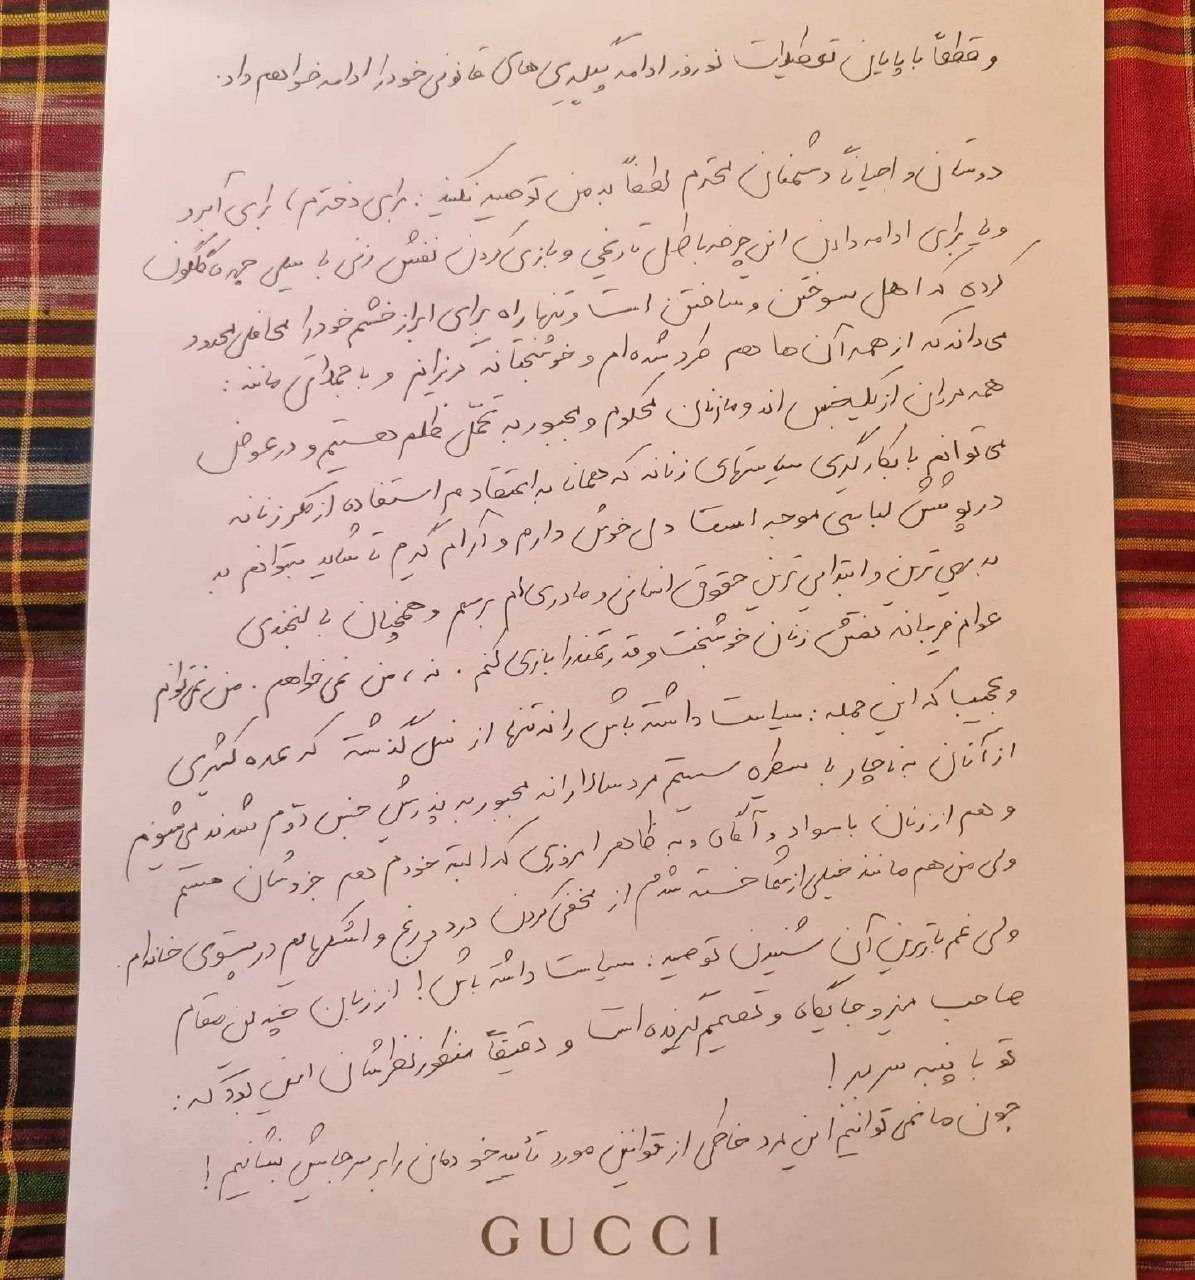 و قطعاً با پایان تعطیلات نوروز ادامه پیگیری‌های قانونی خود را ادامه خواهم داد.
دوستان و احیاناً دشمنان محترم لطفاً به من توصیه نکنید: برای دخترم، برای آبرو
و یا برای ادامه دادن این چرخه باطل تاریخی و بازی کردن نقش زنی با سیلی چهره گلگون
کرده که اهل سوختن و ساختن است و تنها راه برای ابراز خشم خود را محافل محدود
می‌داند که از همه آن‌ها هم طرد شده‌ام و خوشبختانه گریزانم و با جملاتی مانند:
همه مردان از یک جنس‌اند و ما زنان محکوم و مجبور به تحمّل ظلم هستیم و در عوض
می‌توانم با بکارگیری سیاستهای زنانه که همانا به اعتقادم استفاده از مکر زنانه
در پوشش لباسی موجه است دلی خوش دارم و آرام گیرم تا شاید بتوانم به
بدیهی‌ترین و ابتدایی‌ترین حقوق انسانی و مادری‌ام برسم و همچنان با لبخندی
عوام فریبانه نقش زنان خوشبخت و قدرتمند را بازی کنم. نه، من نمی‌خواهم. من نمی‌توانم
و عجیبا که این جمله: سیاست داشته باش را نه تنها از نسل گذشته که عده کثیری
از آنان به ناچار با سیطره سیستم مردسالارانه مجبور به پذیرش جنس دوّم شدند می‌شنوم
و هم از زنان باسواد و آگاه و به ظاهر امروزی که البته خودم هم جزوشان هستم
ولی من هم مانند خیلی از شما خسته شدم از مخفی کردن درد و رنج و اشکهایم در پستوی خانه‌ام.
ولی غم بارترین آن شنیدن توصیه: سیاست داشته باش! از زبان چندین مقام
صاحب میز و جایگاه و تصمیم گیرنده است و دقیقاً منظور نظرشان این بود که:
تو با پنبه سر ببر!
چون ما نمی‌توانیم این مرد خاطی از قوانین مورد تأیید خودمان را بر سر جایش بنشانیم!
GUCCI